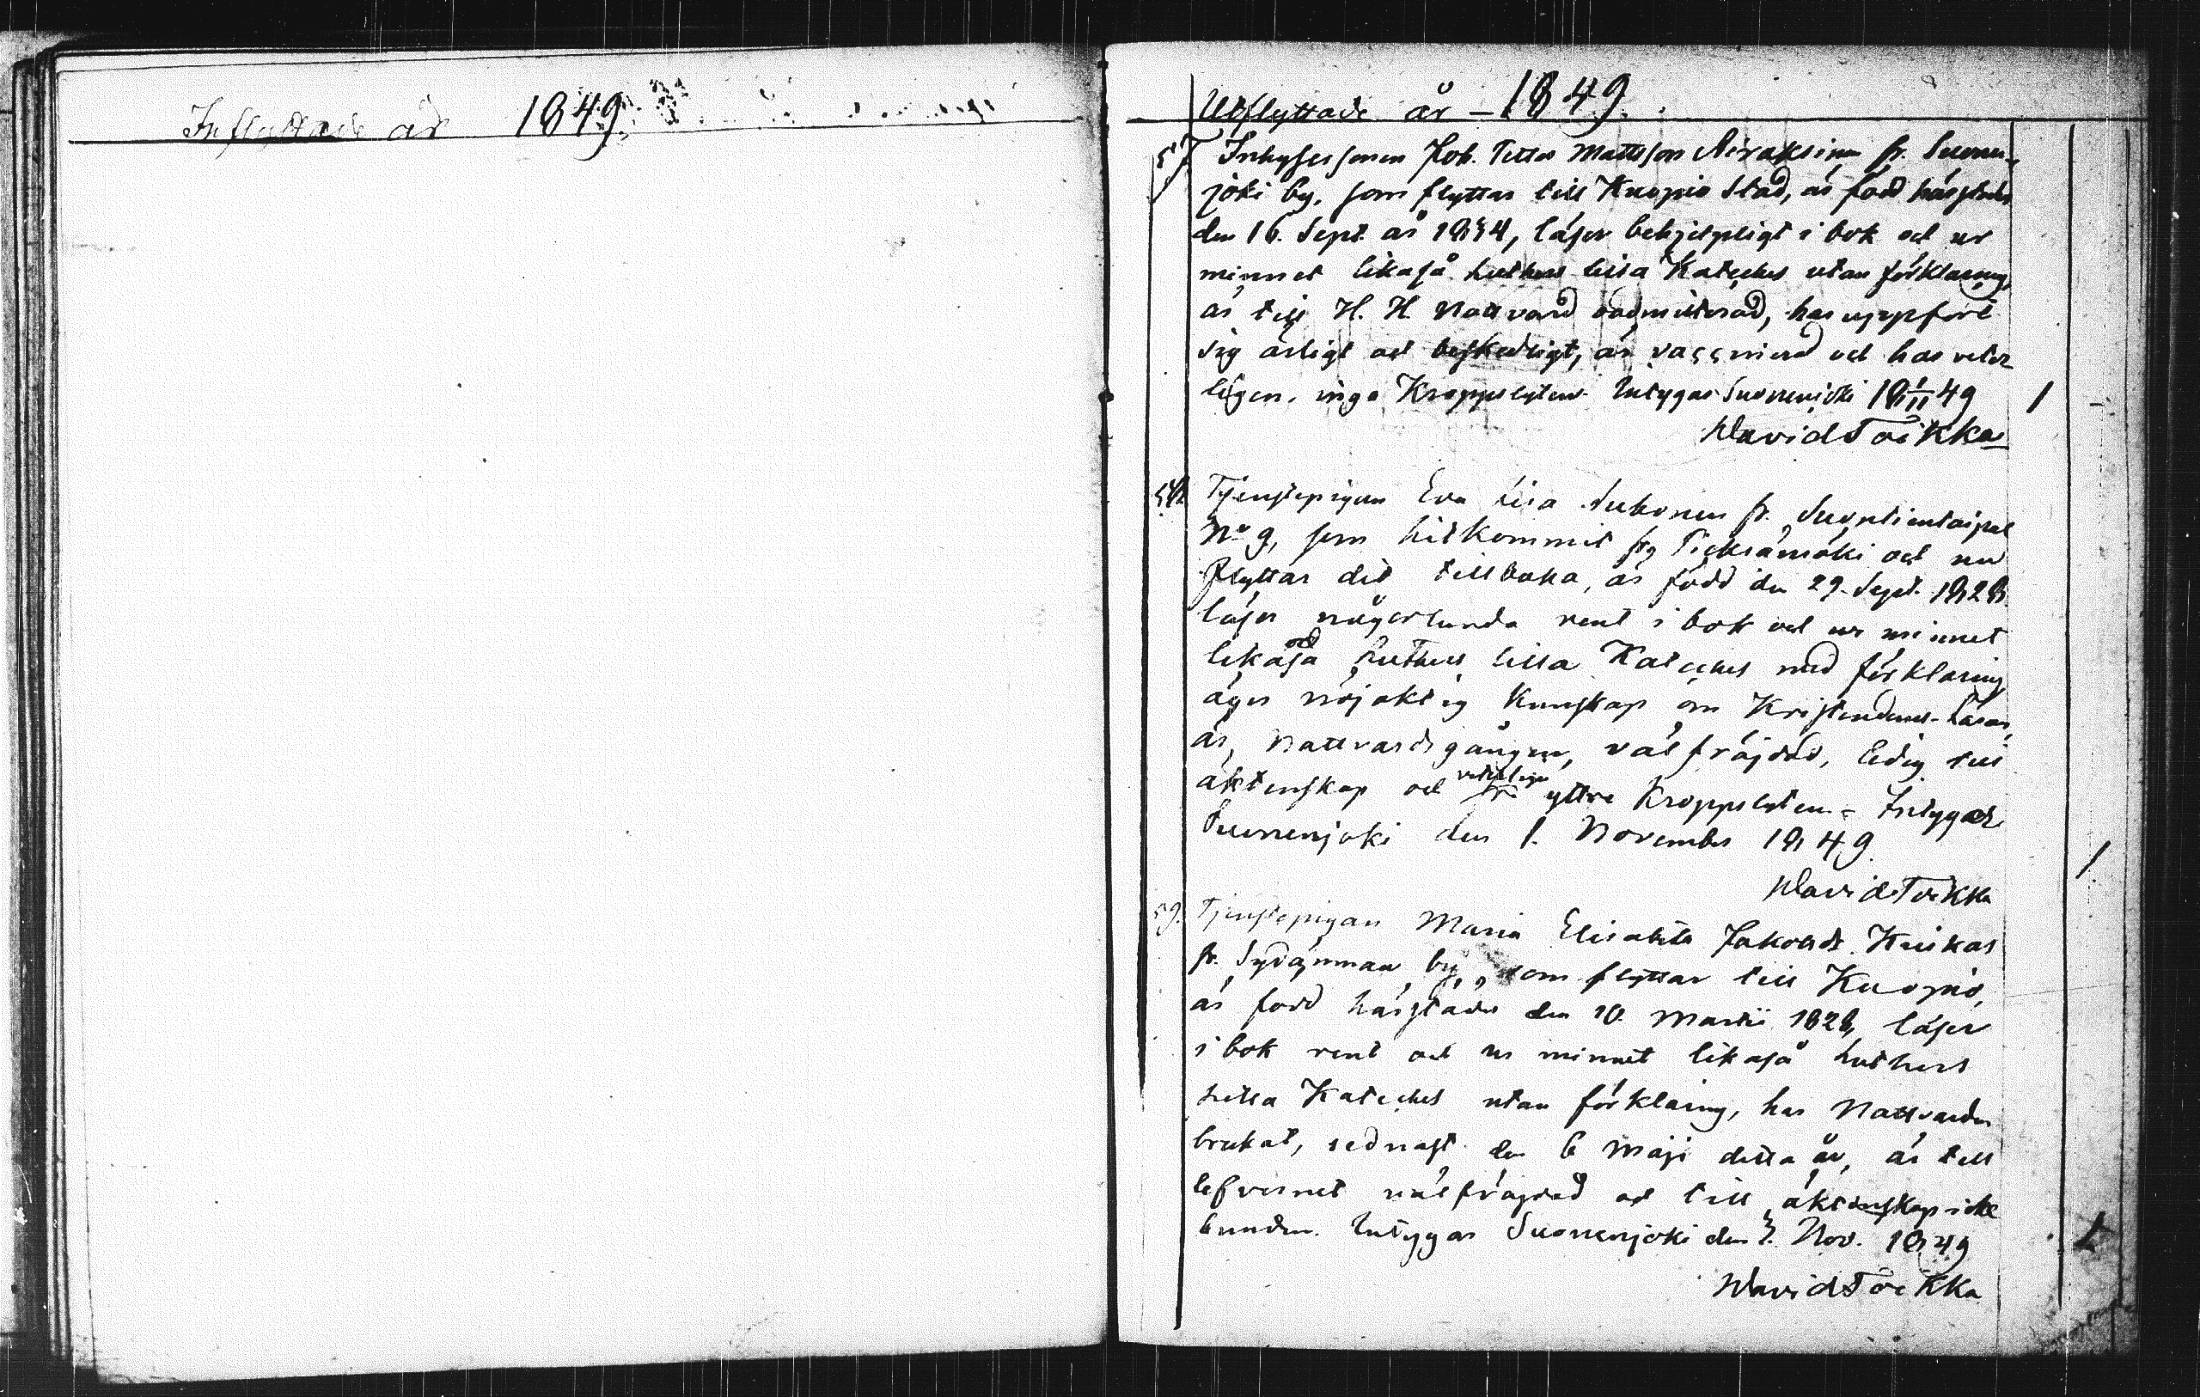 Inflyttade år 1849
Utflyttade år – 1849.
57. Inhysessonen Joh. Petter Mattsson Airaksinen fr. Suonen-
joki by, som flyttar till Kuopio Stad, är född härstädes
den 16. Sept. år 1834, läser behjelpligt i bok och ur
minnet likaså Luthers lilla Kateches utan förklaring,
är till H. H. Nattvard oadmitterad, har uppfört
sig ärligt och beskedligt, är vaccinerad och har veter-
ligen inga Kroppslyten. Intygar Suonenjoki 18 1/11 49
David Toikka
58. Tjenstepigan Eva Lisa Suhonen fr. Suontientaipal
No 9, som hitkommit frg Pieksämäki och nu
flyttar dit tillbaka, är född den 29. Sept. 1828.
läser någorlunda rent i bok och ur minnet
likaså Luthers lilla Kateches med förklaring
äger nöjaktig kunskap om Kristendoms-Läran,
är Nattvardsgången, välfräjdad, ledig till
äktenskap och veterligen fri yttre Kroppslyten. Intygar
Suonenjoki den 1. November 1849.
David Toikka
59. Tjenstepigan Maria Elisabeth Jakobsdr
fr. Sydänmaa by, som flyttar till Kuopio,
är född härstädes den 10. Martii 1828, läser
i bok rent och ur minnet likaså Luthers
Lilla Kateches utan förklaring, har Nattvarden
brukat, sednast den 6 Maji detta år, är till
lefvernet välfräjdad och till äktenskap icke
bunden. Intygar Suonenjoki den Nov. 1849
David Toikka